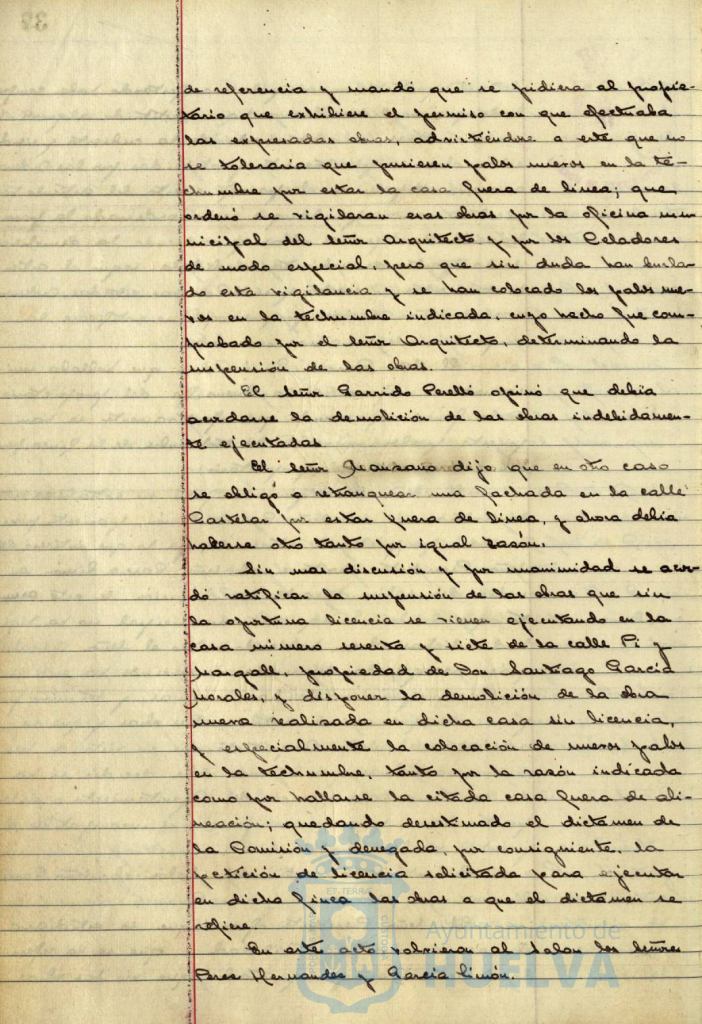 32
de referencia y mandó que se pidiera al propie-
tario que exhibiese el permiso con que efectuaba
las expresadas obras, advirtiéndose a este que no
se toleraria que pusiesen palos nuevos en la te-
chumbre por estar la casa fuera de linea; que
ordenó se vigilaran esas obras por la oficina mu-
nicipal del señor Arquitecto y por los Celadores
de modo especial, pero que sin duda han burla-
do esta vigilancia y se han colocado los palos nue-
vos en la techumbre indicada, cuyo hecho fue com-
probado por el señor Arquitecto, determinando la
suspensión de las obras.
El señor Garrido Perelló opinó que debia
acordarse la demolición de las obras indebidamen-
te ejecutadas
El señor Manzano dijo que en otro caso
se obligó a retranquear una fachada en la calle
Castelar por estar fuera de linea, y ahora debia
haberse otro tanto por igual razón.
Sin mas discusión y por unanimidad se acor-
dó ratificar la suspensión de las obras que sin
la oportuna licencia se vienen ejecutando en la
casa número sesenta y siete de la calle Pi y
Margall, propiedad de Don Santiago Garcia
Morales, y disponer la demolición de la obra
nueva realizada en dicha casa sin licencia,
y especialmente la colocación de nuevos palos
en la techumbre, tanto por la razón indicada
como por hallarse la citada casa fuera de ali-
neación; quedando desestimado el dictamen de
la Comisión y denegada, por consiguiente, la
petición de licencia solicitada para ejecutar
en dicha finca las obras a que el dictamen se
refiere.
En este acto volvieron al salon los señores
Perez Hernandez y Garcia Limón.
Ayuntamiento de
HUELVA